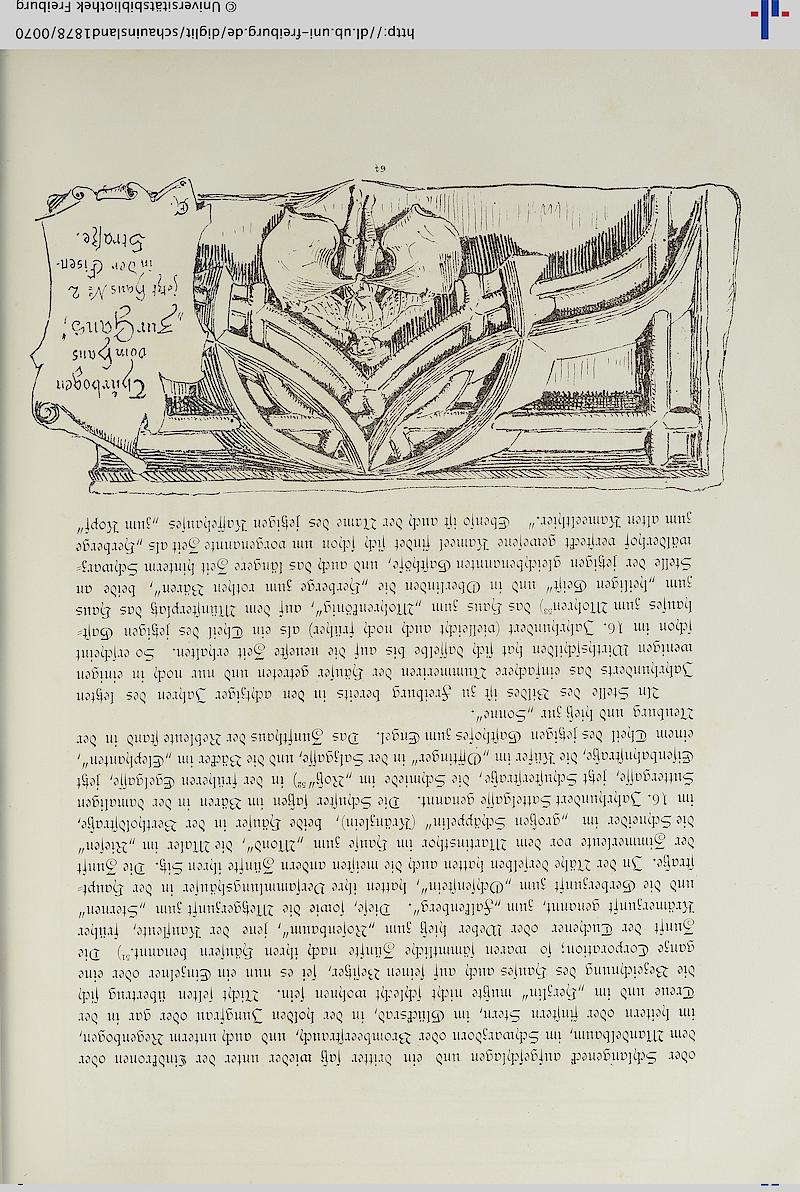 oder Schlangeneck aufgeschlagen und ein dritter saß wieder unter der Lindtronen oder
dem Mandelbaum, im Schwarzdorn oder Brombeerstrauch, und auch unterm Regenbogen,
im heitern oder finstern Stern, im Glücksrad, in der holden Jungfrau oder gar in der
Treue und im „Herzlin“ mußte nicht schlecht wohnen sein. Nicht selten übertrug sich
die Bezeichnung des Hauses auch auf seinen Besitzer, sei es nun ein Einzelner oder eine
ganze Corporation; so waren sämmtliche Zünfte nach ihren Häusern benannt.⁵¹) Die
Zunft der Tuchener oder Weber hieß zum „Rosenbaum“, jene der Kaufleute, früher
Krämerzunft genannt, zum „Falkenberg“. Diese, sowie die Metzgerzunft zum „Sternen“
und die Gerberzunft zum „Ochsenstein“, hatten ihre Versammlungshäuser in der Haupt=
straße. In der Nähe derselben hatten auch die meisten andern Zünfte ihren Sitz. Die Zunft
der Zimmerleute vor dem Martinsthor im Hause zum „Mond“, die Maler im „Riesen“
die Schneider im „großen Schäppelin“ (Kränzlein), beide Häuser in der Bertholdstraße,
im 16. Jahrhundert Sattelgasse genannt. Die Schuster saßen im Bären in der damaligen
Suttergasse, jetzt Schusterstraße, die Schmiede im „Roß“⁵²) in der früheren Egelgasse, jetzt
Eisenbahnstraße, die Küfer im „Öffinger“ in der Salzgasse, und die Bäcker im „Elephanten“,
einem Theil des jetzigen Gasthofes zum Engel. Das Zunfthaus der Rebleute stand in der
Neuburg und hieß zur „Sonne“.
An Stelle des Bildes ist zu Freiburg bereits in den achtziger Jahren des letzten
Jahrhunderts das einfachere Nummerieren der Häuser getreten und nur noch in einigen
wenigen Wirthsschilden hat sich dasselbe bis auf die neueste Zeit erhalten. So erscheint
schon im 16. Jahrhundert (vielleicht auch noch früher) als ein Theil des jetzigen Gast=
hauses zum Mohren⁵³) das Haus zum „Mohrenkönig“, auf dem Münsterplatz das Haus
zum „heiligen Geist“ und in Oberlinden die „Herberge zum rothen Bären“, beide an
Stelle der jetzigen gleichbenannten Gasthöfe, und auch das längere Zeit hinterm Schwarz=
wälderhof versteckt gewesene Kameel findet sich schon um vorgenannte Zeit als „Herberge
zum alten Kameelthier.“ Ebenso ist auch der Name des jetzigen Kaffehauses „zum Kopf“
Thürbogen
vom Haus
„Zur Gans“,
jetzt Haus № 2
in der Eisen-
Straße.
64
http://dl.ub.uni-freiburg.de/diglit/schauinsland1878/0070
© Universitätsbibliothek Freiburg